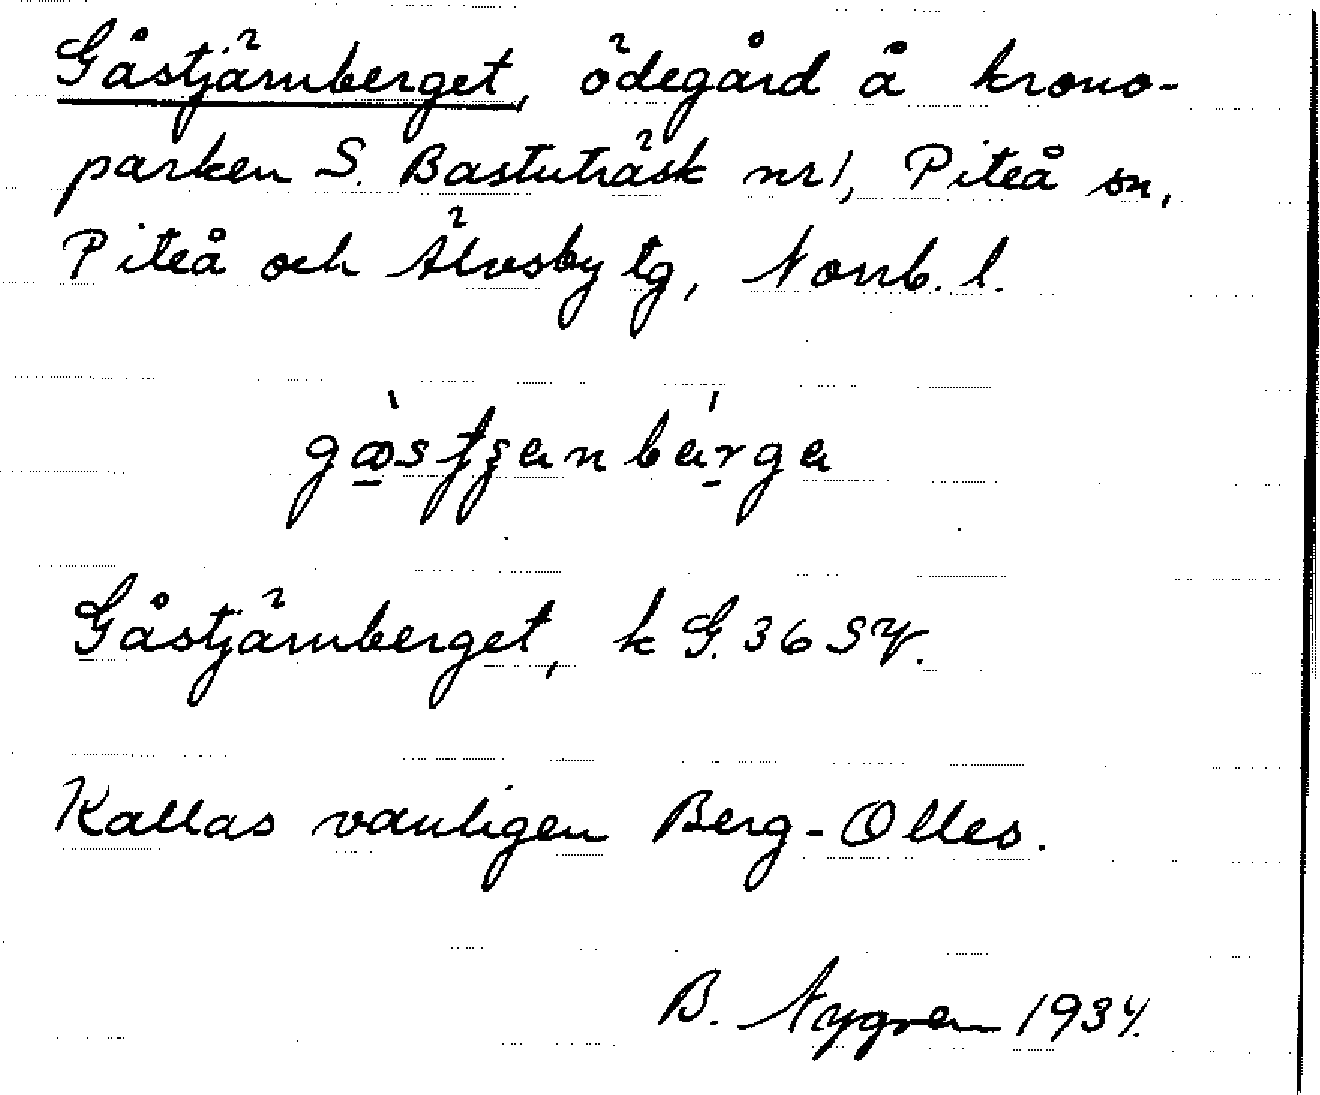 Gåstjärnberget, ödegård å krono-
parken S. Bastuträsk nr 1, Piteå sn,
Piteå och Älvsby tg, Norrb. l.
Gåstjärnberget, k G. 36 SV.
Kallas vanligen Berg-Olles.
B. Nygren 1934.